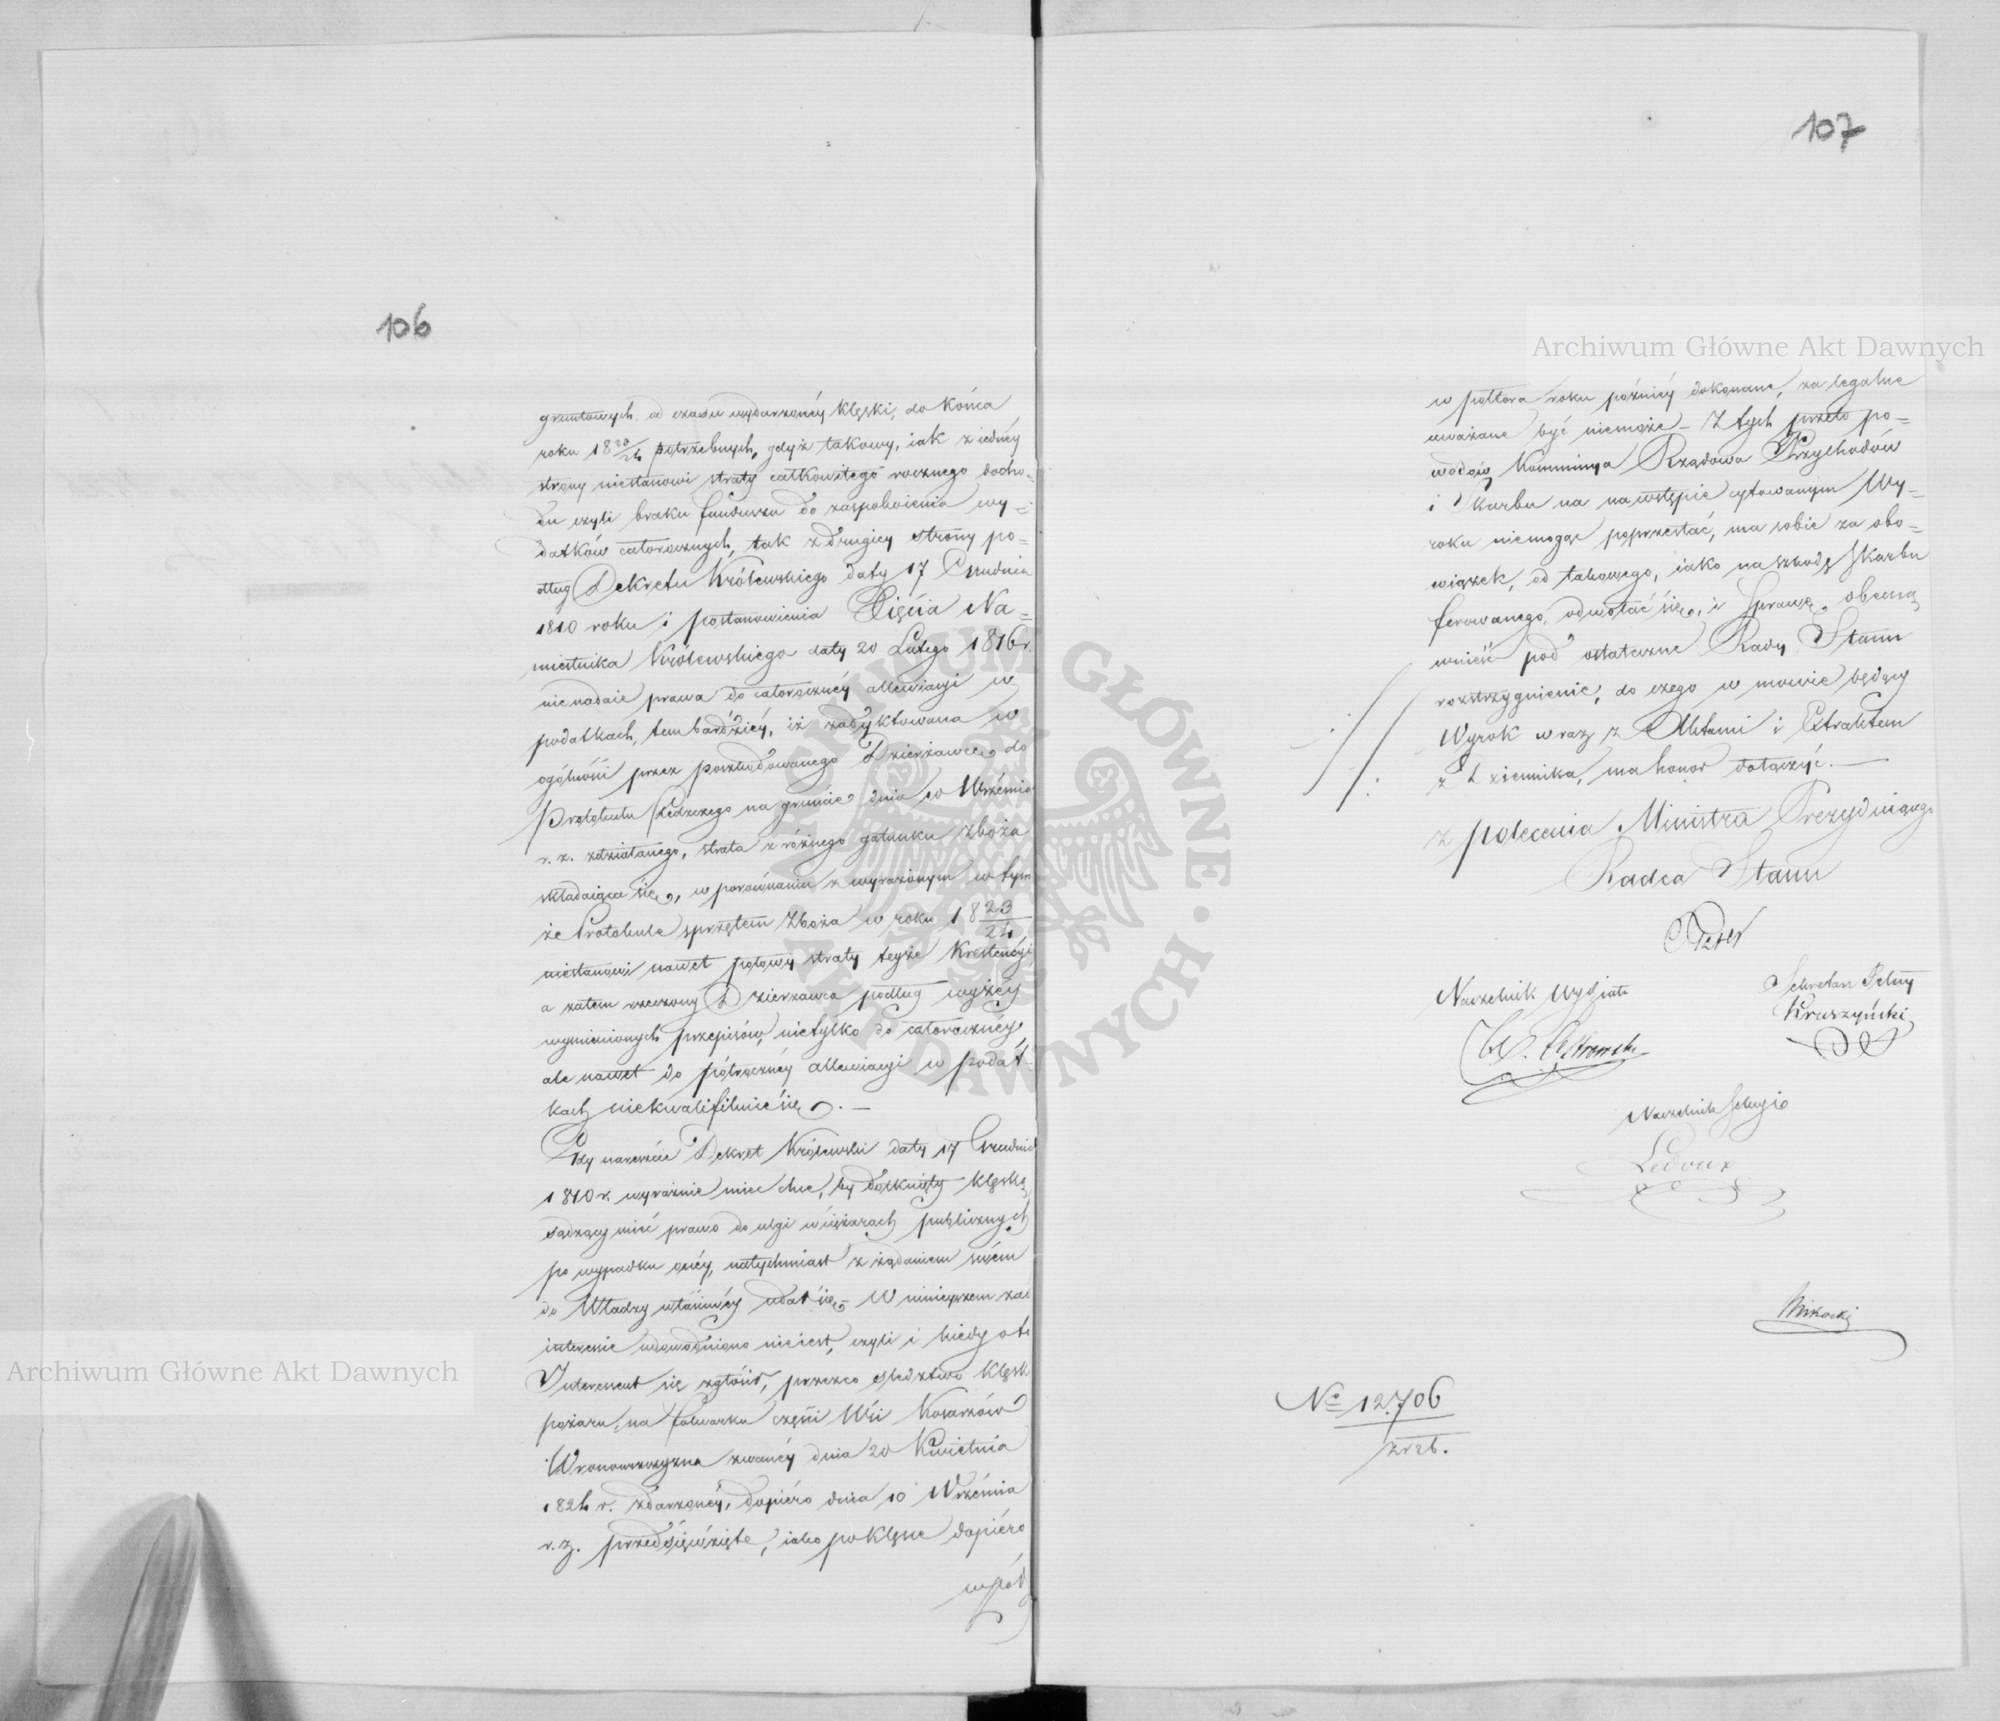 106
gruntowych od czasu wydarzonéy klęski, do końca
roku 18 23/24 potrzebnych, gdyż takowy, iak z iednéy
strony niestanowi straty całkowitego rocznego docho-
du czyli braku funduszu do zaspokoienia wy=
datków całorocznych, tak z drugiey strony po=
dług Dekretu Królewskiego daty 17 Grudnia
1810 roku i postanowienia Xięcia Na=
miestnika Królewskiego daty 20 Lutego 1816 r.
nienadaie prawa do całorocznéy allewiacyi w
podatkach, tem bardziéy, iż zadyktowana w
ogólności przez poszkodowanego Dzierżawcę do
Protokułu Śledczego na gruncie dnia 10 Września
r. z. zdziałanego, strata z różnego gatunku zboża
składaiąca się, w porównaniu z wyrażonym w tym
że Protokule sprzętem zboża w roku 18 23/24
niestanowi nawet połowy straty teyże Krescencyi
a zatem rzeczony Dzierżawca podług wyżéy
wymienionych przepisów, nietylko do całorocznéy
ale nawet do półrocznéy allewiacyi w podat-
kach niekwalifikuie się. —
Gdy nareszcie Dekret Królewski daty 17 Grudnia
1810 r. wyraźnie mieć chce, by dotknięty klęską,
sądzący mieć prawo do ulgi w ciężarach publicznych
po wypadku onéy, natychmiast z żądaniem swém
do Władzy właściwéy udał się – W ninieyszem zaś
interesie udowodniono nieiest, czyli i kiedy
Interessent się zgłosił, przeco śledztwo klęski
pożaru, na folwarku części Wsi Kosarzów
Wronowszczyzna zwanéy dnia 20 Kwietnia
1824 r. zdarzonéy, dopiéro dnia 10 Września
r. z. przedsięwzięte, iako po klęsce dopiéro
w pół
107
w półtora roku późniéy dokonane, za legalne
uważane być niemoże – Z tych przeto po=
wodów Kommissya Rządowa Przychodów
i Skarbu na na wstępie cytowanym Wy=
roku niemogąc poprzestać, ma sobie za obo=
wiązek, od takowego, iako na szkodę Skarbu
ferowanego, odwołać się, i Sprawę obecną
wnieść pod ostateczne Rady Stanu
rozstrzygnienie, do czego w mowie będący
Wyrok wraz z Aktami i Extraktem
z Dziennika, ma honor dołączyć. —
z polecenia Ministra Prezyduiącego
Radca Stanu
Naczelnik Wydziału
Sekretarz Jlny
Kruszyński
Naczelnik Sekcyi
Ledoux
Nº 12,706
Archiwum Główne Akt Dawnych
Archiwum Główne Akt Dawnych
ARCHIWUM GŁÓWNE
AKT DAWNYCH